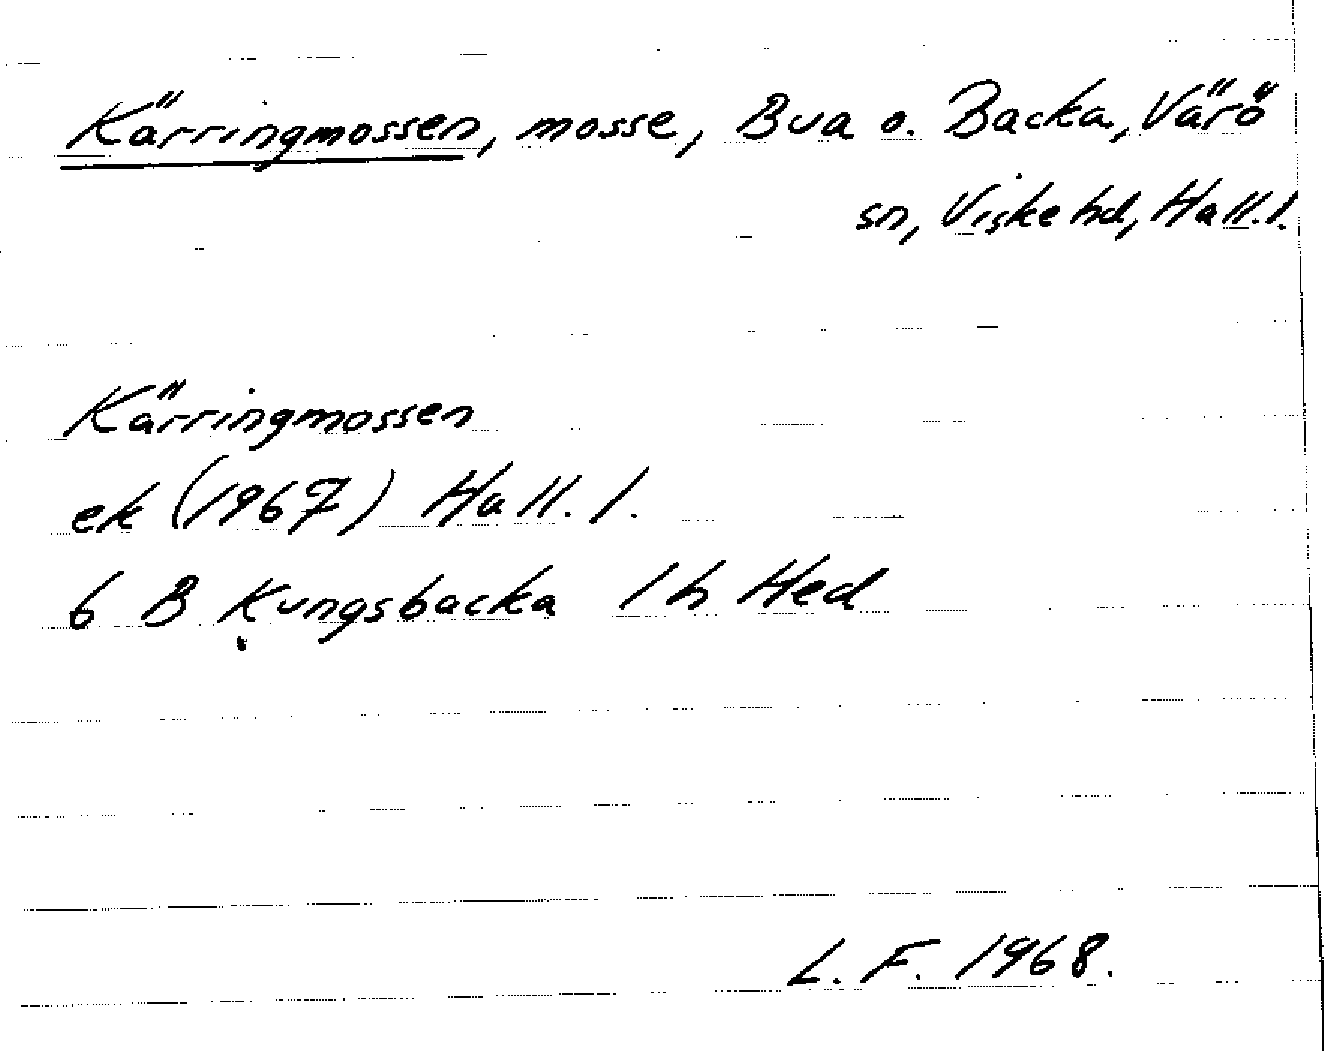 Kärringmossen, mosse, Bua o. Backa, Värö
sn, Viske hd, Hall.l.
Kärringmossen
ek (1967) Hall. l.
6 B Kungsbacka 1h Hed
L. F. 1968.